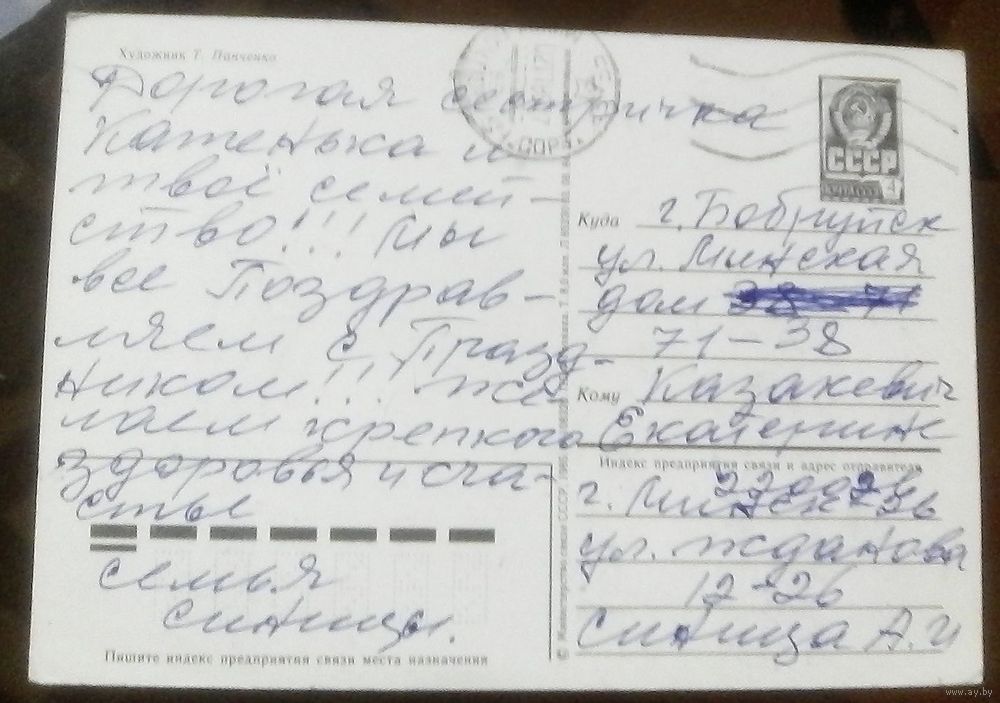 Художник Т. Панченко
Дорогая сестричка
Катенька и
твоё семей-
ство!!! Мы
все Поздрав-
ляем с Празд-
ником!!! Же
лаем крепкого
здоровья и сча-
стья
семья
синицы.
Пишите индекс предприятия связи места назначения
СССР
4
Куда г. Бобруйск
ул. Минская
дом
71-38
Кому Казакевич
Екатерине
Индекс предприятия связи и адрес отправителя
г. Минск
ул. Жданова
12-26
Синица А. И
© Министерство связи СССР
www.ay.by